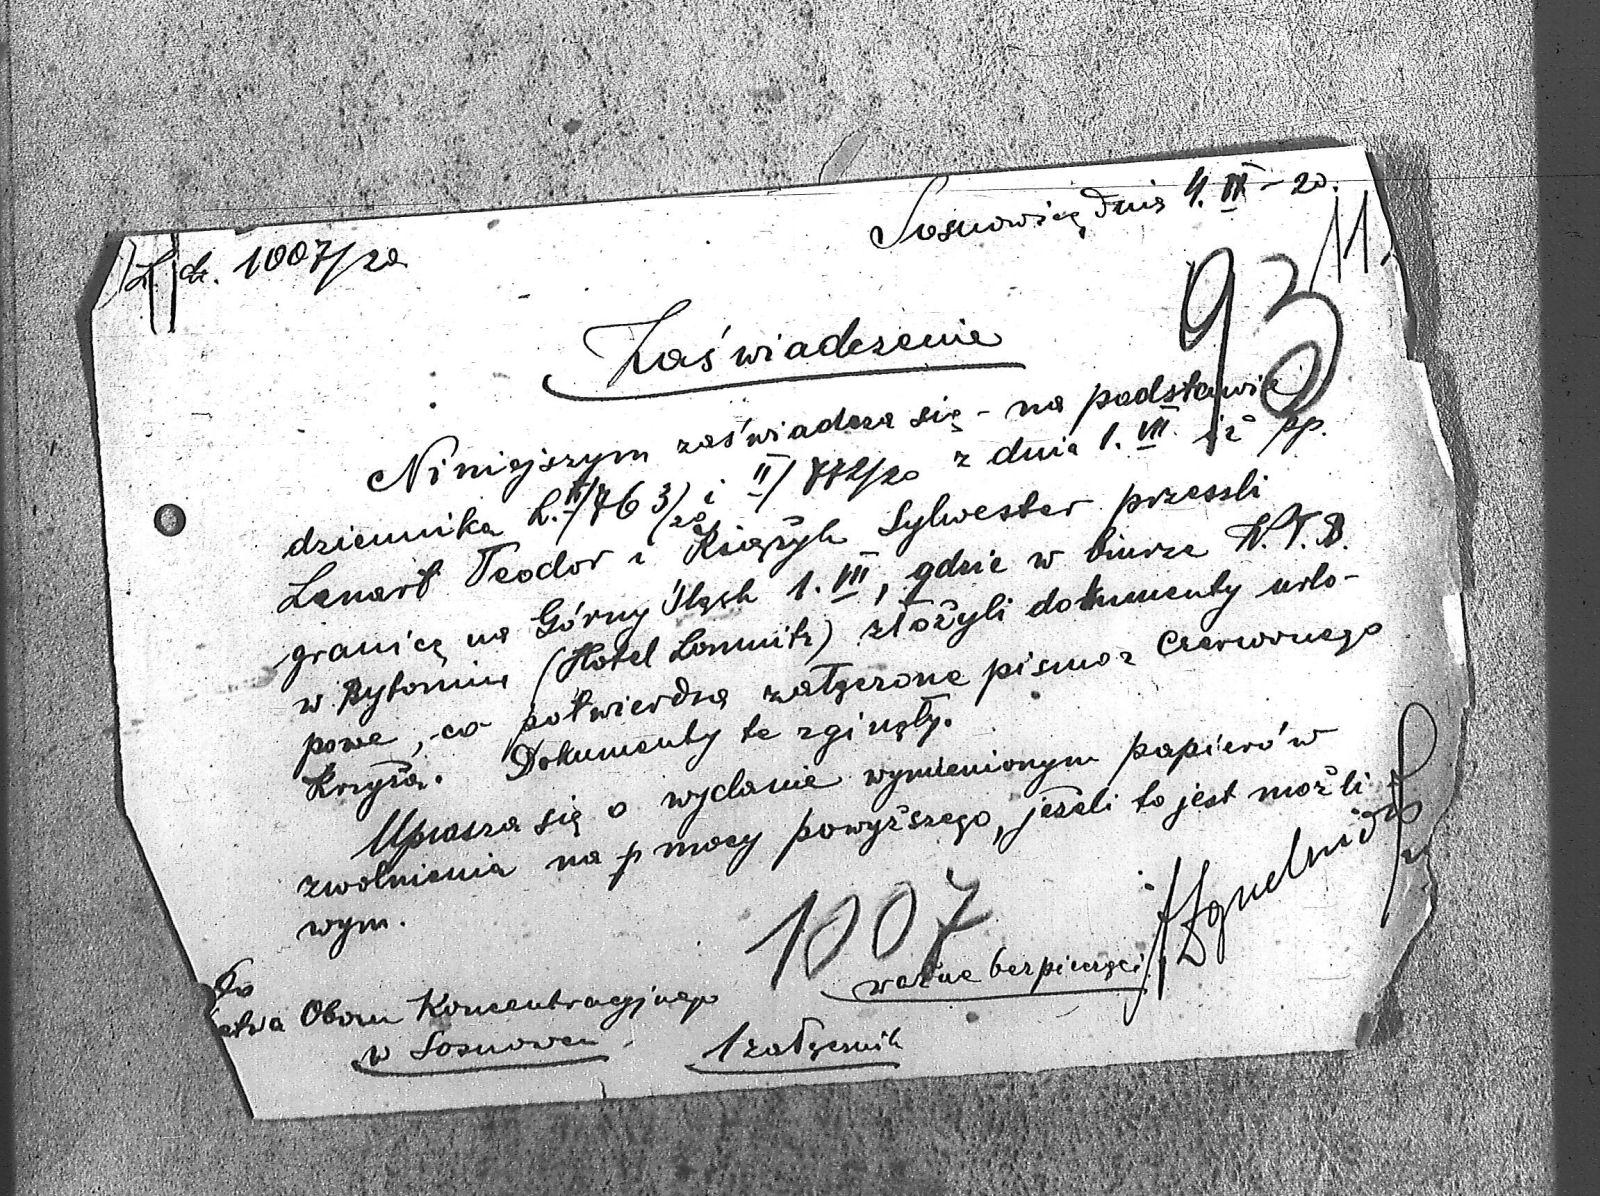 L. dz. 1007/20
Sosnowiec, dnia 4. IX - 20.
11.
93
Zaświadczenie
Niniejszym zaświadcza się - na podstawie
dziennika L. II/763/20 i II/772/20 z dnia 1. VII iż pp.
Lenart Teodor i Książyk Sylwester przeszli
granicę na Górny Śląsk 1. VII, gdzie w biurze W.T.B.
w Bytomiu (Hotel Lomnitz) złożyli dokumenty urlo-
powe, co potwierdza załączone pismo z Czerwonego
Krzyża. Dokumenty te zginęły.
Uprasza się o wydanie wymienionym papierów
zwolnienia na mocy powyższego, jeżeli to jest możli-
wym.
1007
Do
Obozu Koncentracyjnego
w Sosnowcu
1 załącznik
ważne bez pieczęci